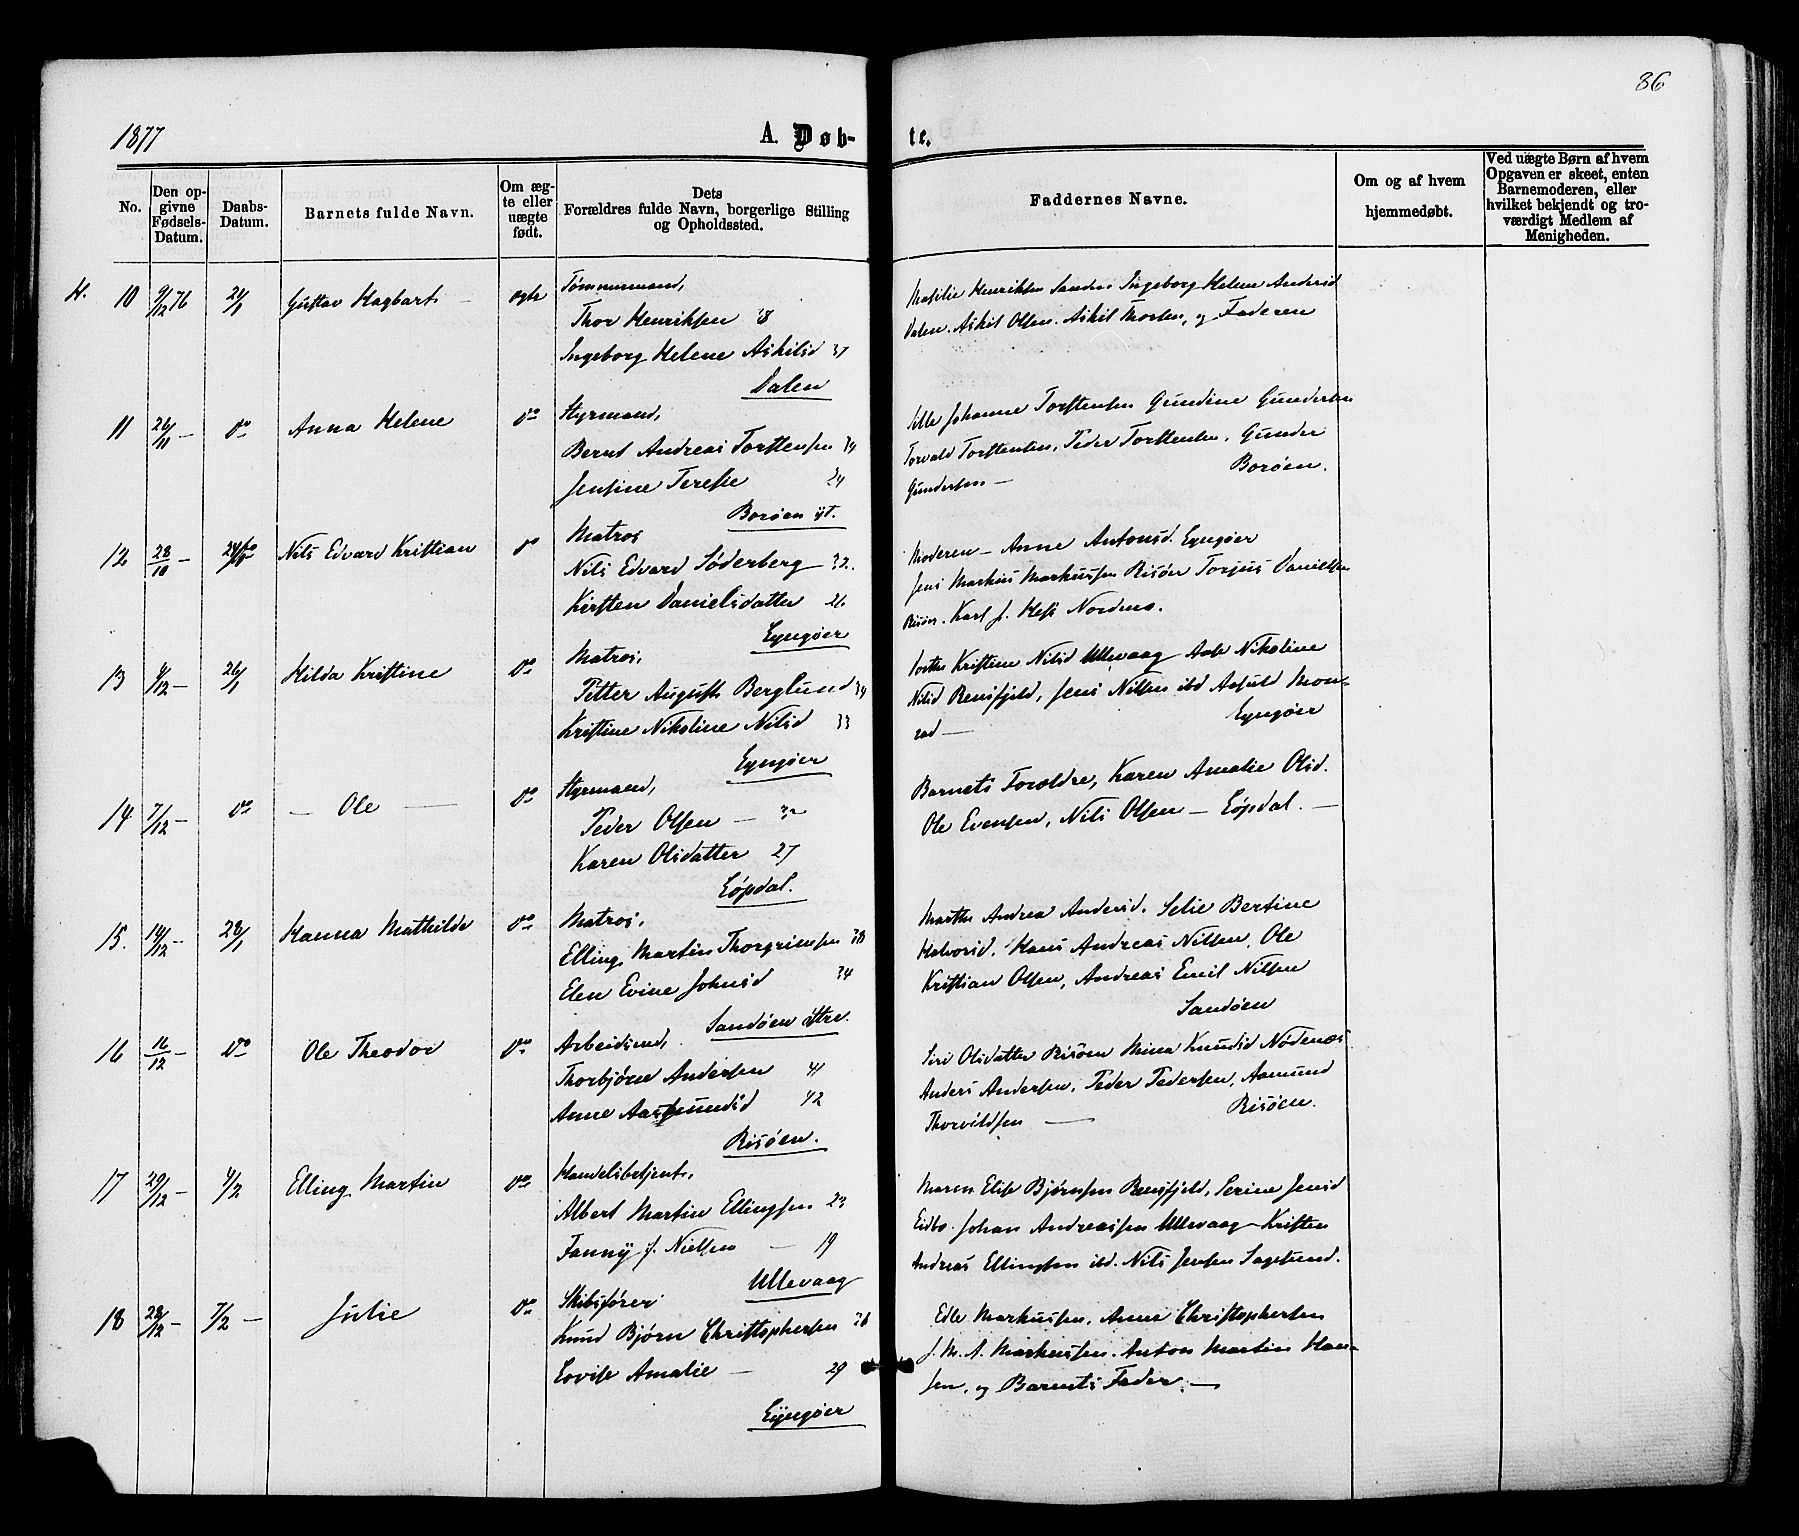 86
1877
A. Døb-
te.
No.
Den op-
givne
Fødsels-
Datum.
Daabs-
Datum.
Barnets fulde Navn.
Om æg-
te eller
uægte
født.
Dets
Forældres fulde Navn, borgerlige Stilling
og Opholdssted.
Faddernes Navne.
Om og af hvem
hjemmedøbt.
Ved uægte Børn af hvem
Opgaven er skeet, enten
Barnemoderen, eller
hvilket bekjendt og tro-
værdigt Medlem af
Menigheden.
H. 10 9/12 76 21/1 Gustav Hagbart - ægte
Tømmermand,
Thor Henriksen 38
Ingeborg Helene Askilsd 37
Dalen
Henriksen Ingeborg Helene Andersd
Dalen. Askil Olsen. Askil og Faderen
11 26/11 - do Anna Helene do
Styrmand,
Bernt Andreas Torstensen 34
Jensine Terese 24
Borøen yt.
Johanne Torstensen Gundine Gundersen
Torvald Torstensen, Peder Torstensen, Gunder
Gundersen - Borøen.
12 28/10 - Nils Edvard Kristian do
Matros
Nils Edvard Söderberg 32.
Kirsten Danielsdatter 26
Lyngøer
Moderen - Anne Antonsd. Lyngøer
Jens Markus Markussen Risøer Torjus Danielsen
Risøer. Karl J. Hess
13 4/12 - 26/1 Hilda Kristine do
Matros,
Petter August Berglund 34
Kristine Nikoline Nilsd 33
Lyngøer
Kristine Nilsd Ullevaag Nikoline
Nilsd Rensfjeld, Jens Nilsen ibd Mon-
rad - Lyngøer
14 7/12 - do - Ole - do
Styrmand,
Peder Olsen -
Karen Olsdatter 27
Løpdal.
Barnets Forældre, Karen Amalie Olsd.
Ole Evensen, Nils Olsen - Løpdal. -
15. 14/12 - 28/1 Hanna Mathilde do
Matros,
Elling Martin Thorgrimsen 38
Elen Evine Johnsd 34
Sandøen
Marthe Andrea Andersd. Selie Bertine
Halvorsd. Hans Andreas Nilsen, Ole
Kristian Olsen, Andreas Emil Nilsen
Sandøen
16 16/12 - do Ole Theodor do
Arbeidsmd,
Thorbjørn Andersen 41
Anne Aasmundsd 42
Risøen.
Siri Olsdatter Risøen Mina Knudsd Nødenæs
Anders Andersen, Peder Pedersen, Aamund
Thorvildsen - Risøen.
17 29/12 - 4/2 Elling Martin do
Handelsbetjent,
Albert Martin Ellingsen 23
Fanny f. Nielsen - 19
Ullevaag
Maren Elise Bjørnsen Rensfjeld, Serine Jensd
Eidbo. Johan Andreassen Ullevaag - Kristen
Andreas Ellingsen ibd. Nils Jensen Sagesund.
18 28/12 - 7/2 - Julie do
Skibsfører
Knud Bjørn Christophersen 36
Lovise Amalie - 29
Lyngøer
Edle Markussen, Anne Christophersen
J. M. A. Markussen. Anton Martin Han-
sen, og Barnets Fader. -